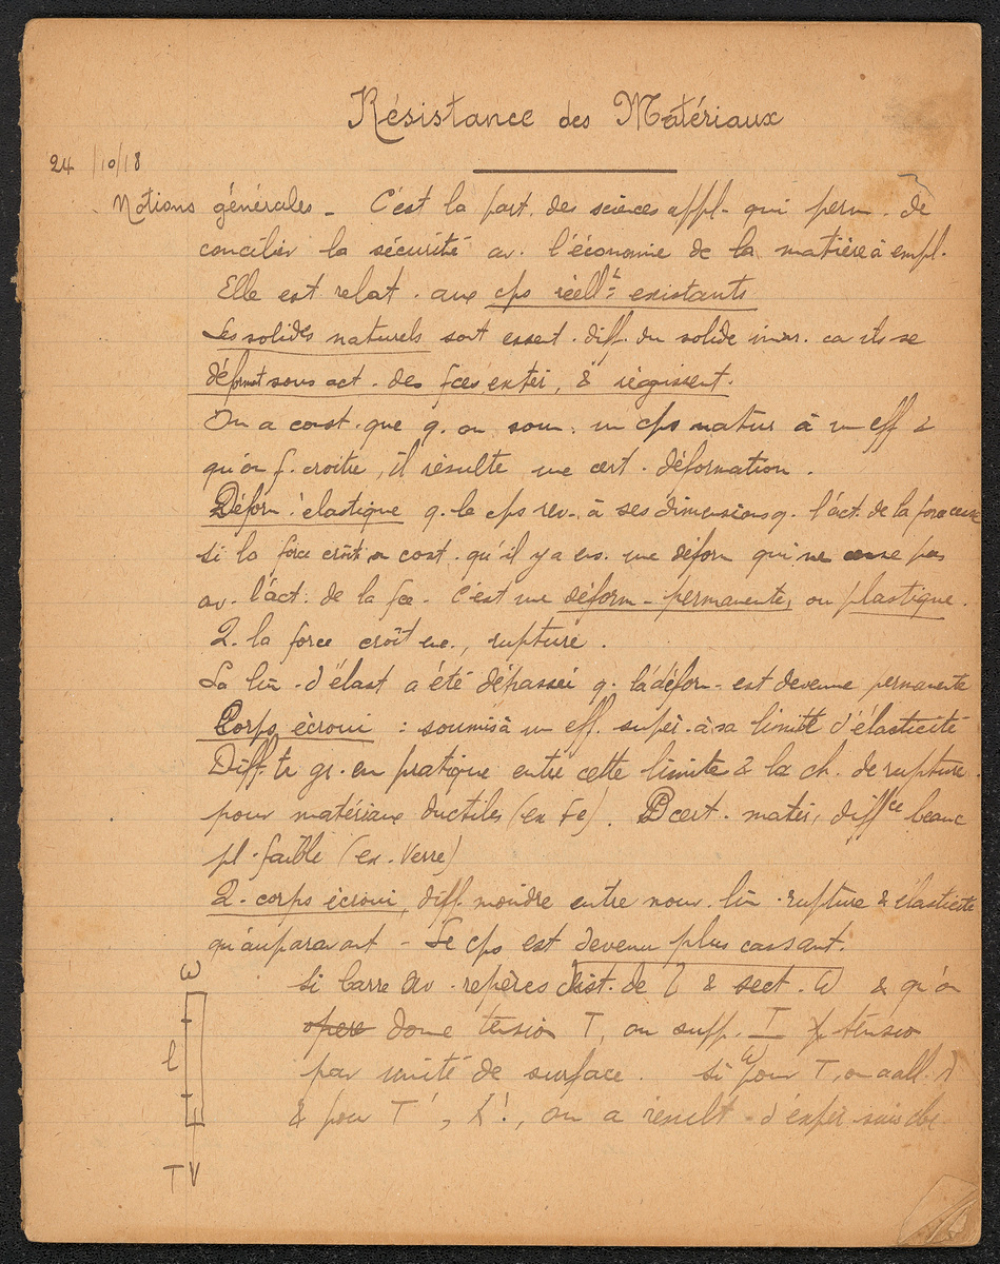 Résistance des Matériaux
24/10/18
Notions générales - C'est la part. des sciences appl. qui perm. de
concilier la sécurité av. l'économie de la matière à empl.
Elle est relat. aux cps réellt existants
Les solides naturels sont essent. diff. du solide invar. car ils se
déformt sous act. des fces extér, & réagissent.
On a const. que q. on soum. un cps natur à un eff &
qu'on f. croître, il résulte une cert. déformation.
Déform. élastique q. le cps rev. à ses dimensions q. l'act. de la force cesse
si la force croît on const. qu'il y a ens. une déform qui ne cesse pas
av. l'act. de la fce. C'est une déform. permanente, ou plastique.
Q. la force croît enc., rupture.
La lim. d'élast a été dépassée q. la déform. est devenue permanente
Corps écroui : soumis à un eff. supér. à sa limite d'élasticité
Diff. tr gr. en pratique entre cette limite & la ch. de rupture
pour matériaux ductiles (ex Fe). P cert. matér, diffce beauc
pl. faible (ex. Verre)
Q. corps écroui, diff moindre entre nouv. lim. rupture & élasticité
qu'auparavant - Le cps est devenu plus cassant.
Si barre av. repères dist. de l & sect. ω & qu'on
ω
donne tension T, on supp. T/ω tension
l
par unité de surface. si pour T, on a all. λ
& pour T', λ', on a result. d'expér
T